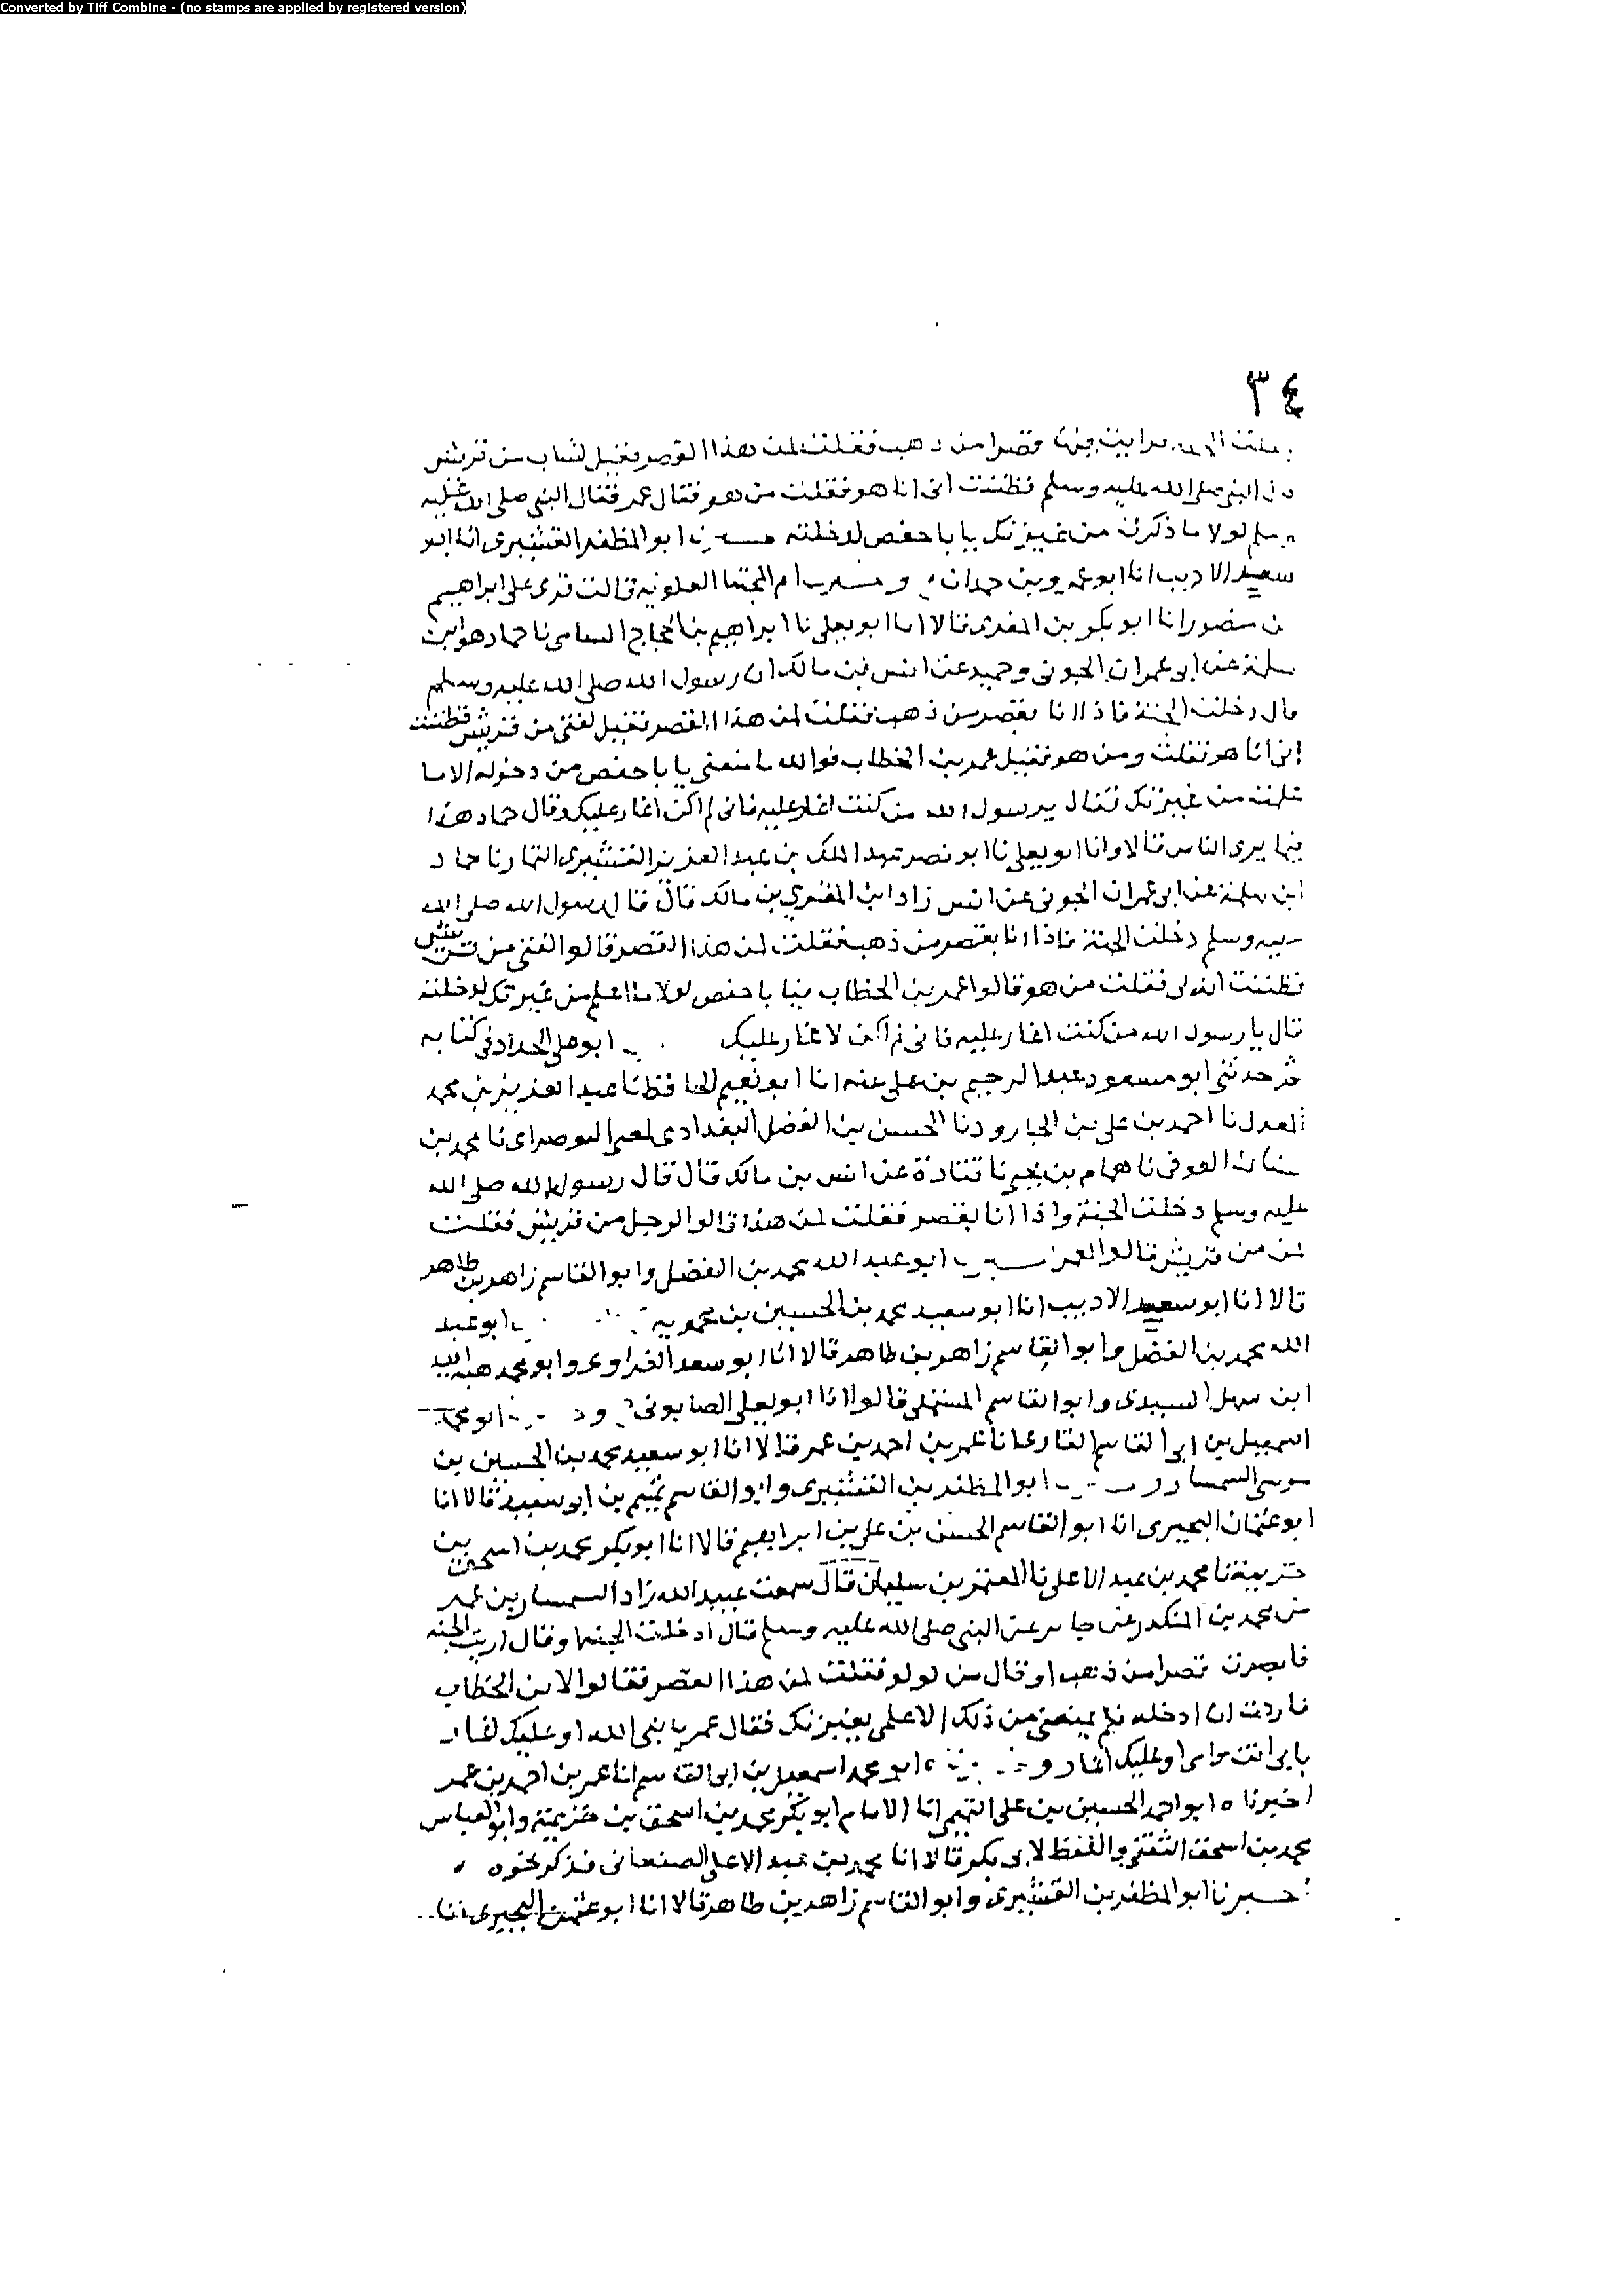 Converted by Tiff Combine - (no stamps are applied by registered version)
٣٤
قصرا من ذهب فقلت لمن هذا القصر فقيل لشاب من قريش
النبي صلى الله عليه وسلم فظننت انى انا هو فقلت من هو فقال عمر فقال النبى صلى الله عليه
لولا ما ذكرت من غيرتك يابا حفص لدخلته ابو المظفر القشيرى انا ابو
سعيد الاديب انا ابو عمرو بن حمدان ام المجتبا العلويه قالت قرى على ابراهيم
بن منصور انا ابو بكر بن المقرى قالا انا ابو يعلى نا ابراهيم بن الحجاج السامى نا حماد هو ابن
سلمة عن ابى عمران الجونى وحميد عن انس بن مالك ان رسول الله صلى الله عليه وسلم
قال دخلت الجنة فاذا انا بقصر من ذهب فقلت لمن هذا القصر فقيل لفتى من قريش فظننت
انى انا هو فقلت ومن هو فقيل عمر بن الخطاب فوالله ما منعنى يابا حفص من دخوله الا ما
علمت من غيرتك فقال يرسول الله من كنت اغار عليه فانى لم اكن اغار عليك وقال حماد هذا
فيما يرى الناس قالا وانا ابو يعلى نا ابو نصر عبد الملك بن عبد العزيز القشيرى التمار نا حماد
ابن سلمة عن ابى عمران الجونى عن انس زاد ابن المقرى بن مالك قال قال رسول الله صلى الله
عليه وسلم دخلت الجنة فاذا انا بقصر من ذهب فقلت لمن هذا القصر قالوا لفتى من قريش
فظننت انه لى فقلت من هو قالوا عمر بن الخطاب فيا يا حفص لولا ما اعلم من غيرتك لدخلته
قال يا رسول الله من كنت اغار عليه فانى لم اكن لاغار عليك ابو على الحداد فى كتابه
ثم حدثنى ابو مسعود عبد الرحيم بن على عنه انا ابو نعيم الحافظ نا عبد العزيز بن محمد
العدل نا احمد بن على بن الجارود نا الحسن بن الفضل البغدادى نا محمد بن
سنان العوفى نا همام بن يحيى نا قتادة عن انس بن مالك قال قال رسول الله صلى الله
عليه وسلم دخلت الجنة واذا انا بقصر فقلت لمن هذا قالوا لرجل من قريش فقلت
من من قريش قالوا لعمر ابو عبد الله محمد بن الفضل وابو القاسم زاهر بن طاهر
قالا انا ابو سعيد الاديب انا ابو سعيد محمد بن الحسين بن ابو عبد
الله محمد بن الفضل وابو القاسم زاهر بن طاهر قالا انا ابو سعد الفراوى وابو محمد هبة الله
ابن سهل السيدى وابو القاسم المستملى قالوا انا ابو يعلى الصابونى ابو محمد
اسمعيل بن ابى القاسم القارى انا عمر بن احمد بن عمر قالا انا ابو سعيد محمد بن الحسين بن
موسى السمسار ابو المظفر بن القشيرى وابو القاسم تميم بن ابو سعيد قالا انا
ابو عثمان البحيرى انا ابو القاسم الحسن بن على بن ابراهيم قالا انا ابو بكر محمد بن اسحق بن
خزيمة نا محمد بن عبد الاعلى نا المعتمر بن سليمان قال سمعت عبيد الله زاد السمسار بن عمر
عن محمد بن المنكدر عن جابر عن النبى صلى الله عليه وسلم قال ادخلت الجنة او قال اريت الجنه
فابصرت قصرا من ذهب او قال من لولو فقلت لمن هذا القصر فقالوا لابن الخطاب
فاردت ان ادخله فلم يمنعنى من ذلك الا علمى بغيرتك فقال عمر يا نبى الله او عليك اغار
بابى انت وامى او عليك اغار ابو محمد اسمعيل بن ابى القاسم انا عمر بن احمد بن عمر
اخبرنا ابو احمد الحسين بن على التميمى انا الامام ابو بكر محمد بن اسحق بن خزيمة وابو العباس
محمد بن اسحق الثقفى واللفظ لابى بكر قالا انا محمد بن عبد الاعلى الصنعانى فذكر نحوه
اخبرنا ابو المظفر بن القشيرى وابو القاسم زاهر بن طاهر قالا انا ابو عثمن البحيرى انا